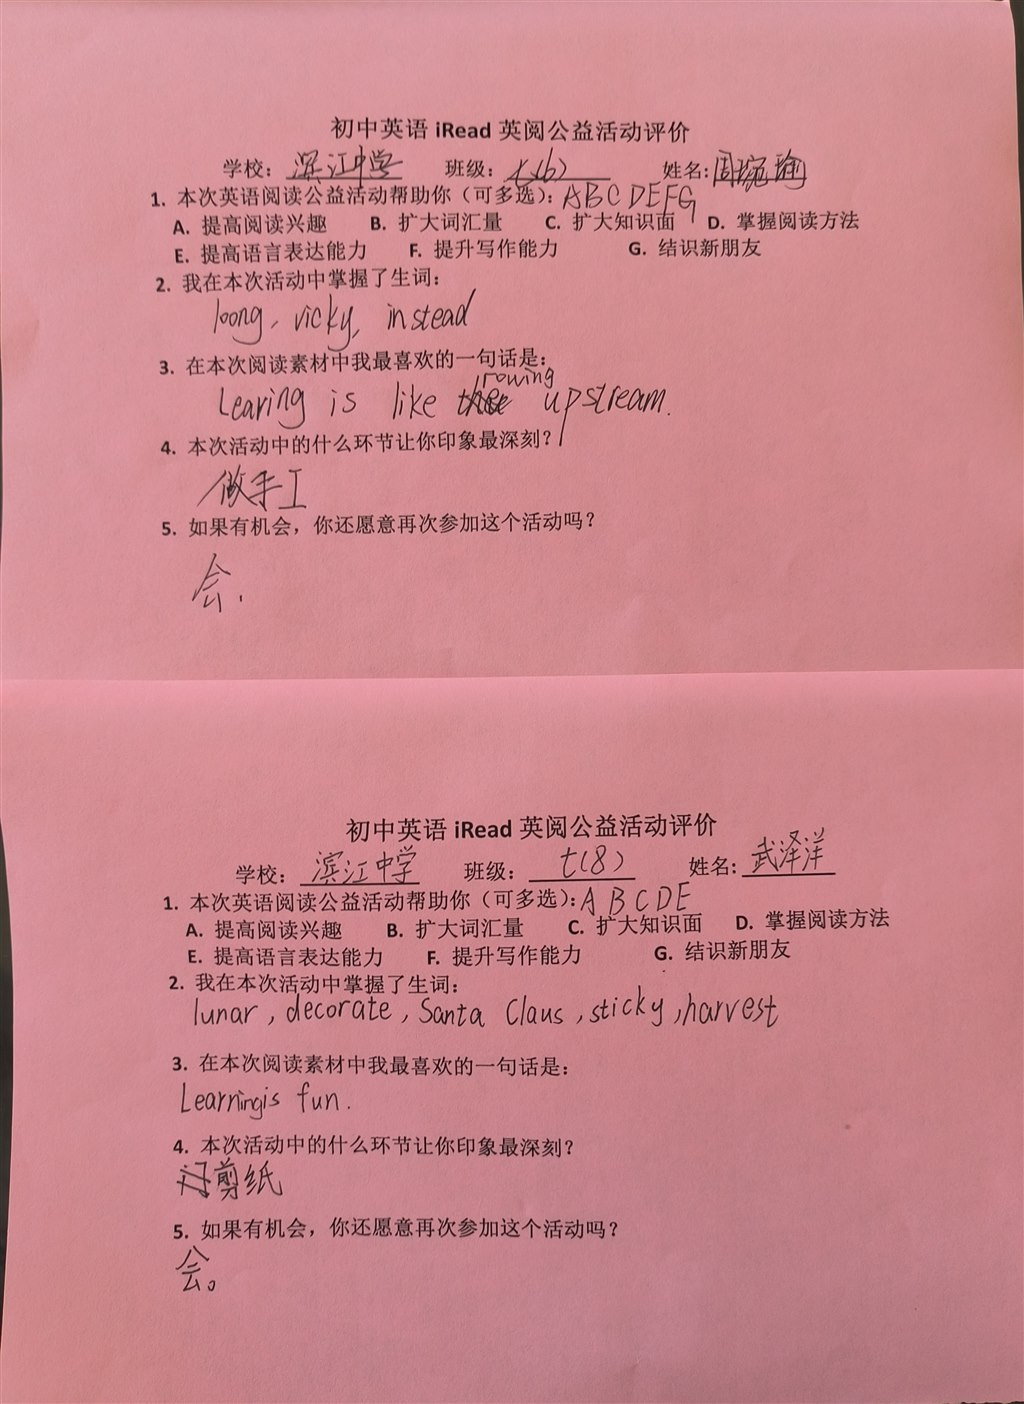 初中英语 iRead 英阅公益活动评价
学校: 滨江中学 班级: 七(6) 姓名: 周琬瑜
1. 本次英语阅读公益活动帮助你（可多选）: ABCDEFG
A. 提高阅读兴趣 B. 扩大词汇量 C. 扩大知识面 D. 掌握阅读方法
E. 提高语言表达能力 F. 提升写作能力 G. 结识新朋友
2. 我在本次活动中掌握了生词:
loong, vicky, instead
3. 在本次阅读素材中我最喜欢的一句话是:
Learing is like rowing upstream.
4. 本次活动中的什么环节让你印象最深刻？
做手工
5. 如果有机会，你还愿意再次参加这个活动吗？
会.
初中英语 iRead 英阅公益活动评价
学校: 滨江中学 班级: 七(8) 姓名: 武泽洋
1. 本次英语阅读公益活动帮助你（可多选）: A B C D E
A. 提高阅读兴趣 B. 扩大词汇量 C. 扩大知识面 D. 掌握阅读方法
E. 提高语言表达能力 F. 提升写作能力 G. 结识新朋友
2. 我在本次活动中掌握了生词:
lunar, decorate, Santa Claus, sticky, harvest
3. 在本次阅读素材中我最喜欢的一句话是:
Learning is fun.
4. 本次活动中的什么环节让你印象最深刻？
剪纸
5. 如果有机会，你还愿意再次参加这个活动吗？
会。